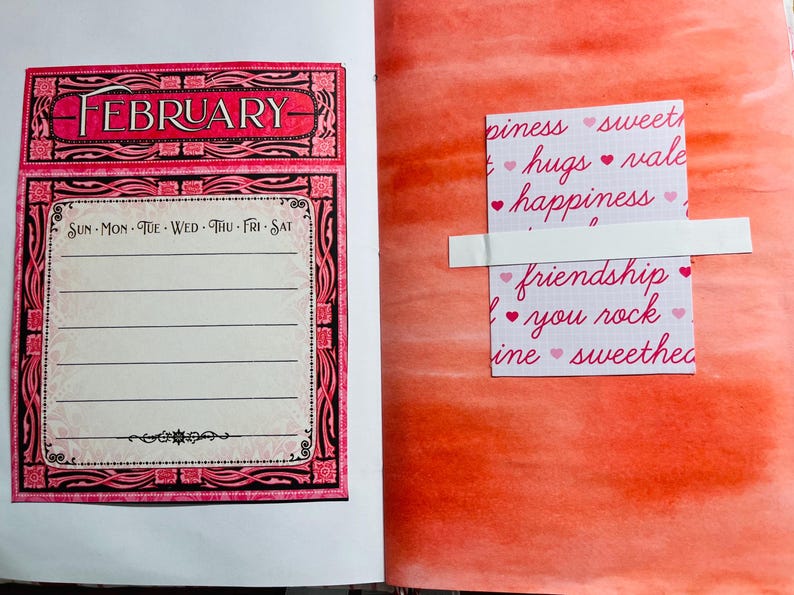 FEBRUARY
SUN · MON · TUE · WED · THU · FRI · SAT
piness sweeth
hugs vale
happiness
friendship
you rock
ine sweethea